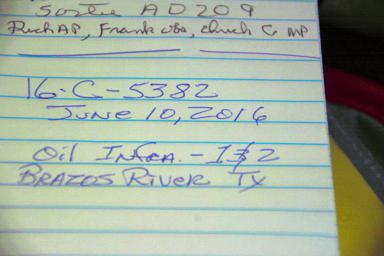 Sortie AD209
Rich AP, Frank obs, chuck G MP
16-C-5382
June 10, 2016
Oil Infra. - 1 & 2
Brazos River Tx